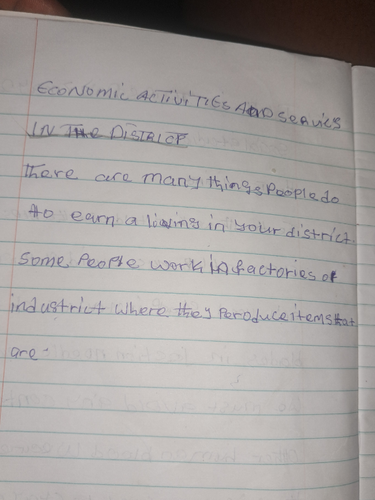 ECONOMIC ACTIVITIES AND SERVICS
IN THE DISTRICT
There are many things People do
to earn a living in your district.
Some People work in factories of
industrict where they Peroduce items that
are-